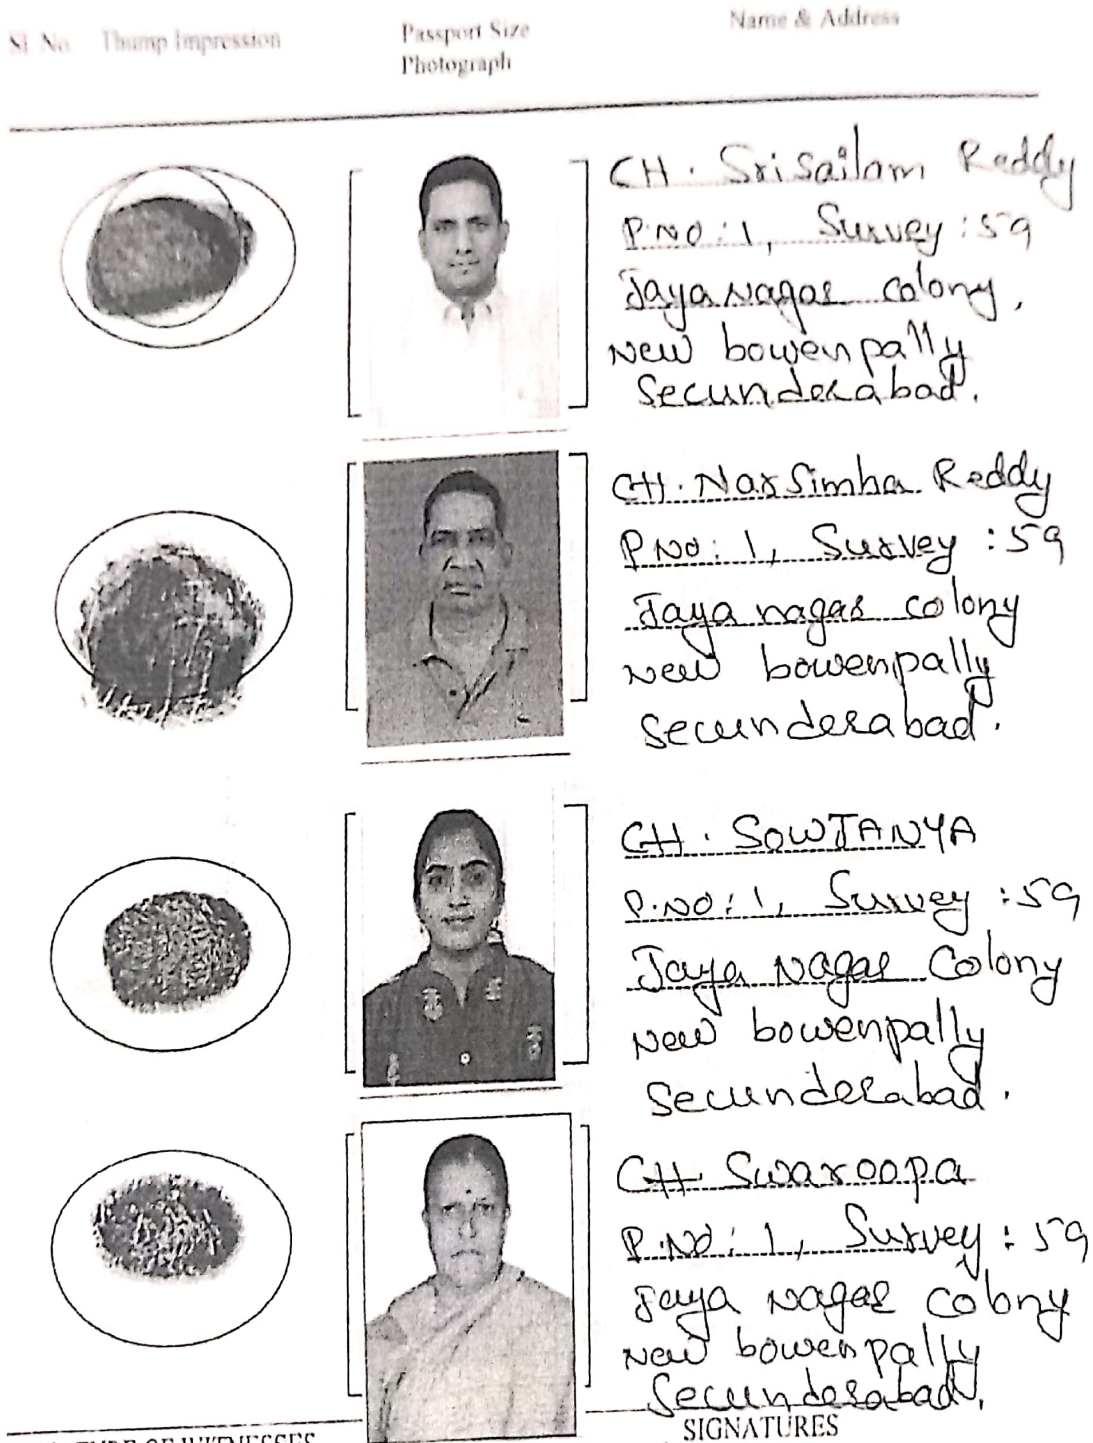 Sl. No. Thump Impression Passport Size Photograph Name & Address
CH. Srisailam Reddy
P.NO: 1, Survey: 59
Jaya Nagar colony,
New bowenpally
Secunderabad.
CH. Narsimha Reddy
P.NO: 1, Survey: 59
Jaya nagar colony
New bowenpally
Secunderabad.
CH. SOWJANYA
P.NO: 1, Survey: 59
Jaya Nagar Colony
New bowenpally
Secunderabad.
CH. Swaroopa
P.NO: 1, Survey: 59
Jaya Nagar colony
New bowenpally
Secunderabad.
OF WITNESSES SIGNATURES